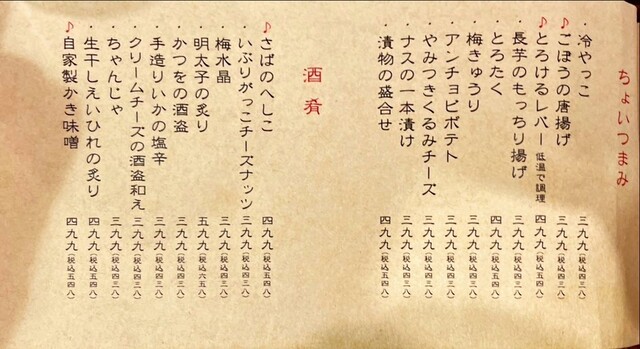 ちょいつまみ
・冷やっこ 三九九(税込四三八)
♪ごぼうの唐揚げ 三九九(税込四三八)
♪とろけるレバー 低温で調理 四九九(税込五四八)
・長芋のもっちり揚げ 三九九(税込四三八)
・とろたく 四九九(税込五四八)
・梅きゅうり 三九九(税込四三八)
・アンチョビポテト 三九九(税込四三八)
・やみつきくるみチーズ 三九九(税込四三八)
・ナスの一本漬け 三九九(税込四三八)
・漬物の盛合せ 四九九(税込五四八)
酒肴
♪さばのへしこ 四九九(税込五四八)
・いぶりがっこチーズナッツ 三九九(税込四三八)
・梅水晶 三九九(税込四三八)
・明太子の炙り 五九九(税込六五八)
・かつをの酒盗 三九九(税込四三八)
・手造りいかの塩辛 三九九(税込四三八)
・クリームチーズの酒盗和え 三九九(税込四三八)
・ちゃんじゃ 三九九(税込四三八)
・生干しえいひれの炙り 四九九(税込五四八)
♪自家製かき味噌 四九九(税込五四八)